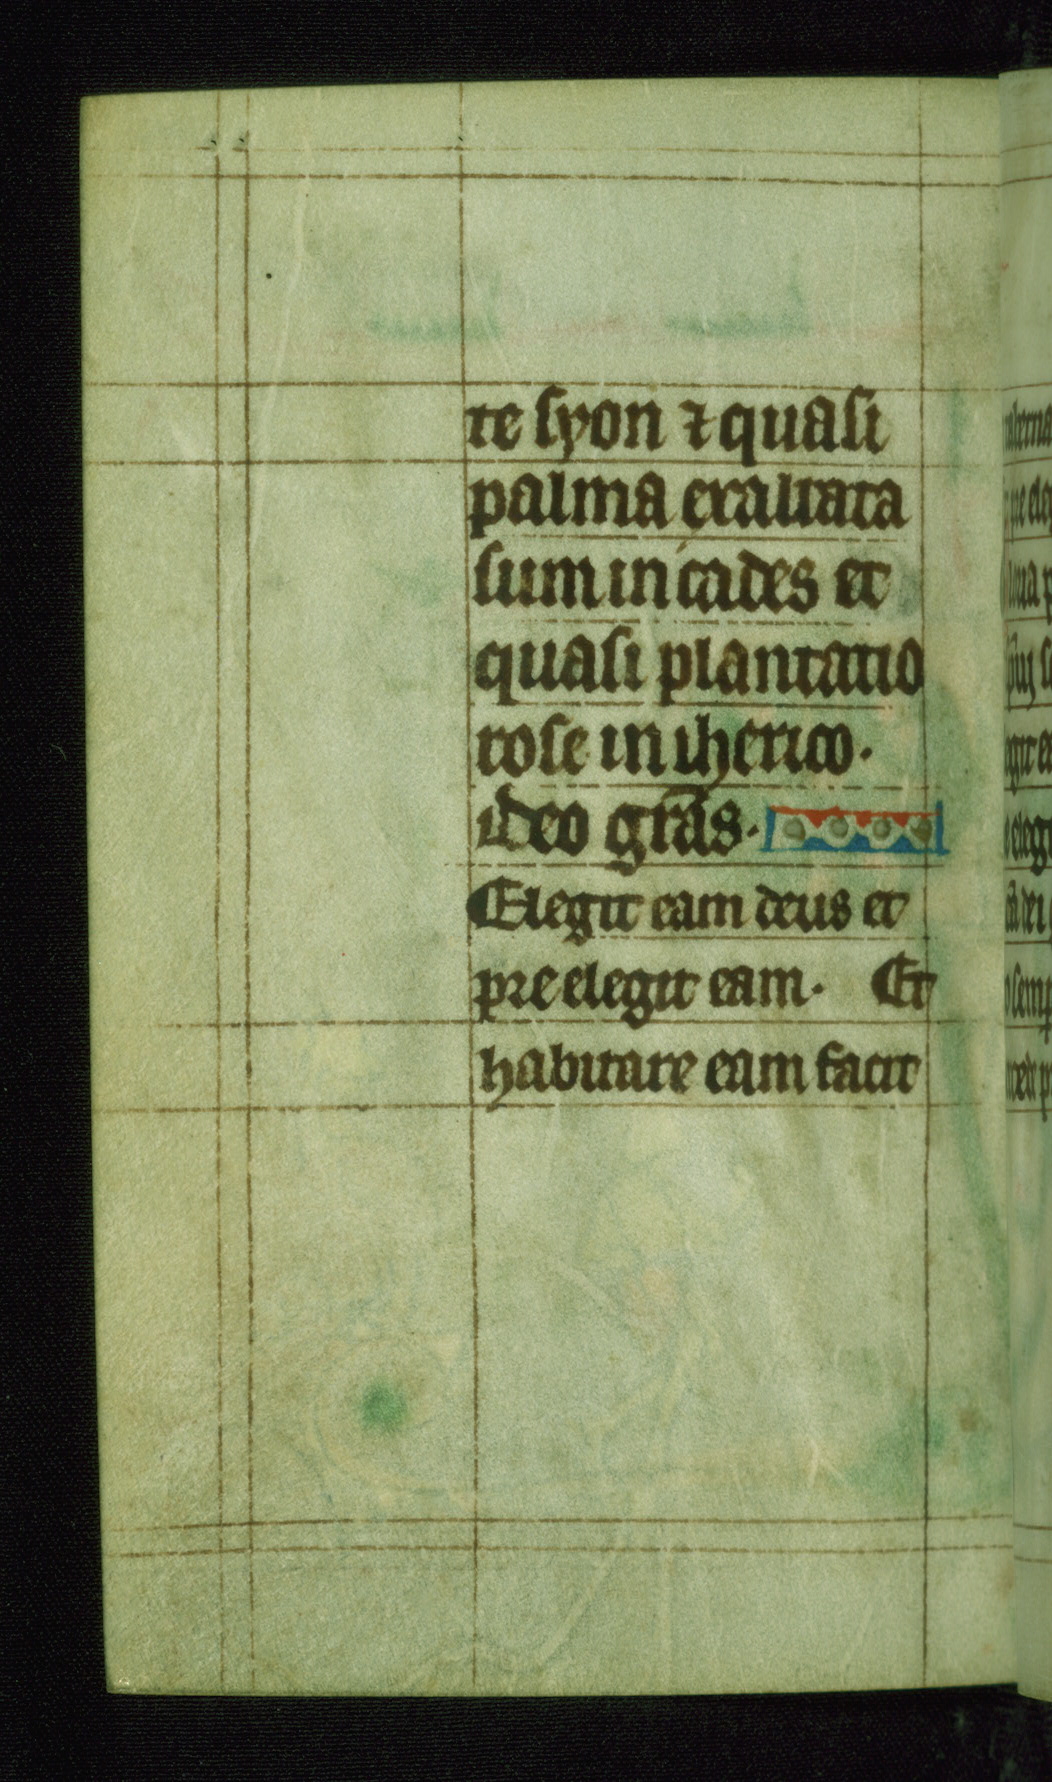 te syon ⁊ quasi
palma exaltata
sum in cades et
quasi plantatio
rose in iherico.
ideo gr̄as.
Elegit eam deus et
preelegit eam. Et
habitare eam facit